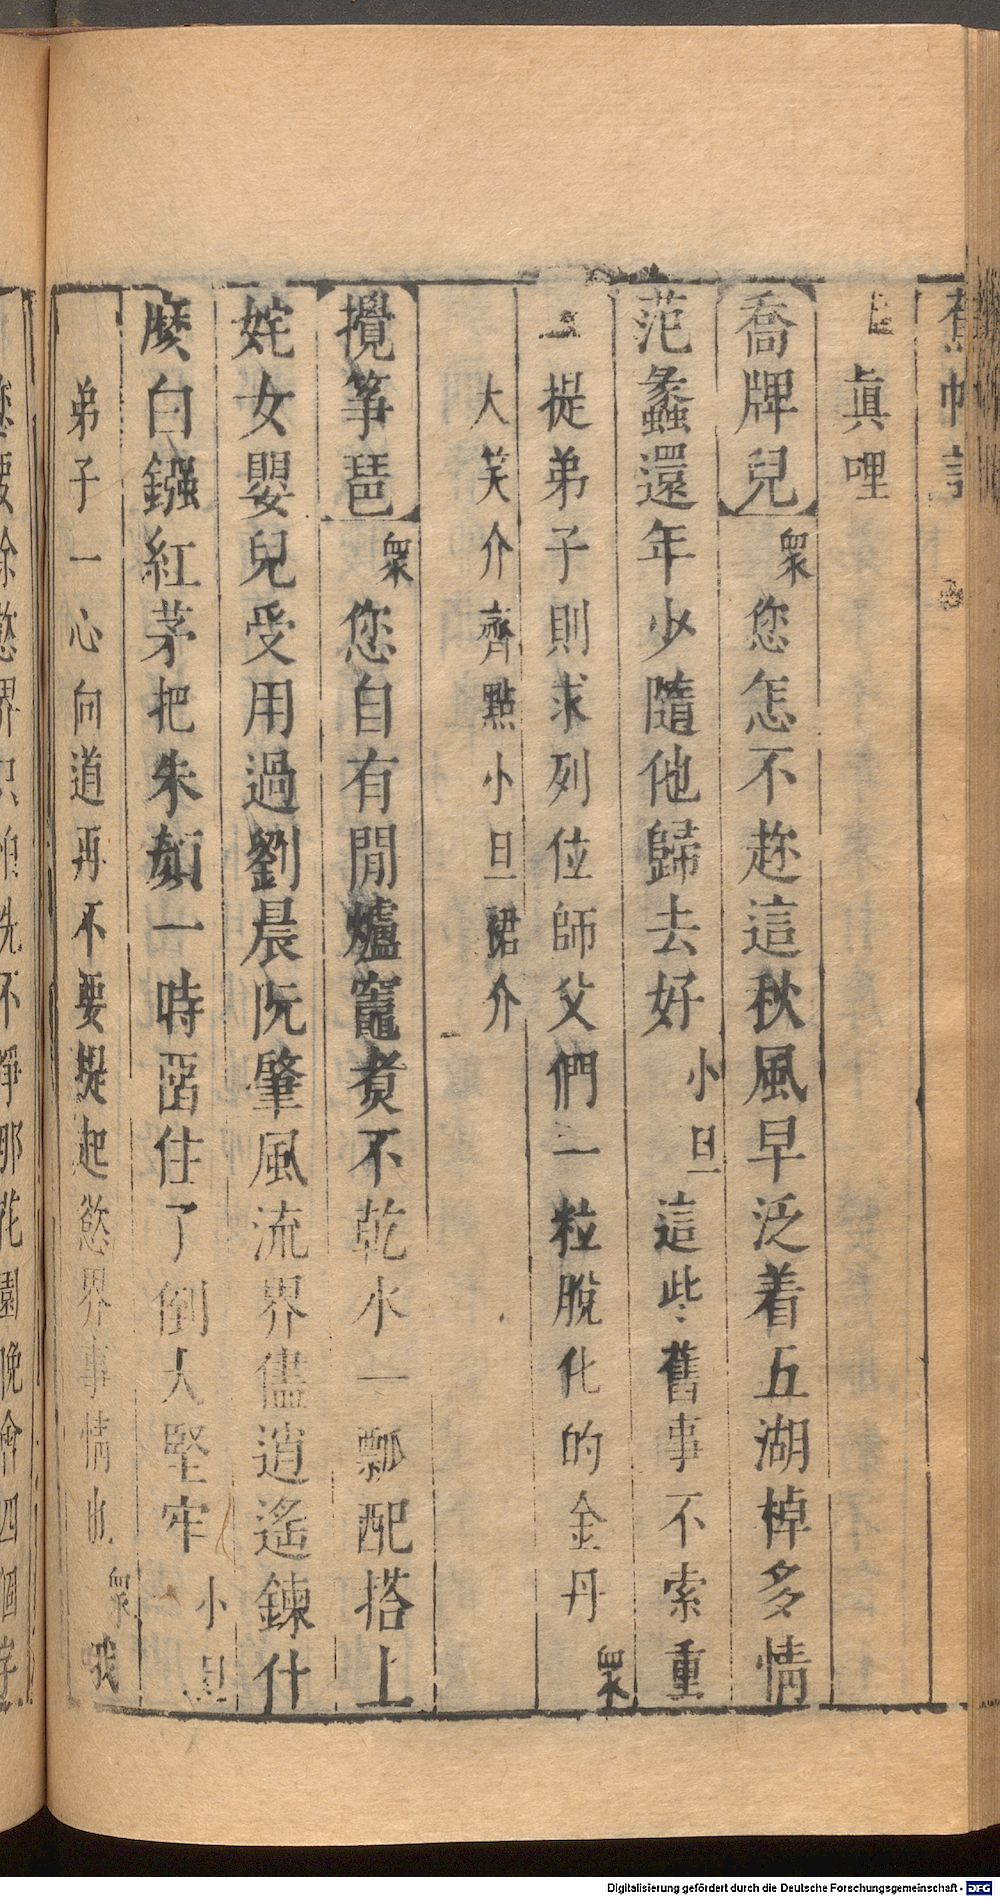 蕉帕記
眞哩
喬牌兒衆您怎不趂這秋風早泛着五湖棹多情
范蠡還年少隨他歸去好小旦這些舊事不索重
提弟子則求列位師父們一粒脫化的金丹衆
大笑介齊點小旦裙介
攪筝琶衆您自有閒爐竈煮不乾水一瓢配搭上
姹女嬰兒受用過劉晨阮肇風流界儘逍遙鍊什
麽白鏹紅茅把朱顏一時畱住了倒大堅牢小旦
弟子一心向道再不要提起慾界事情也衆哦
您要除慾界只怕洗不淨那花園晚會四個字
Digitalisierung gefördert durch die Deutsche Forschungsgemeinschaft - DFG